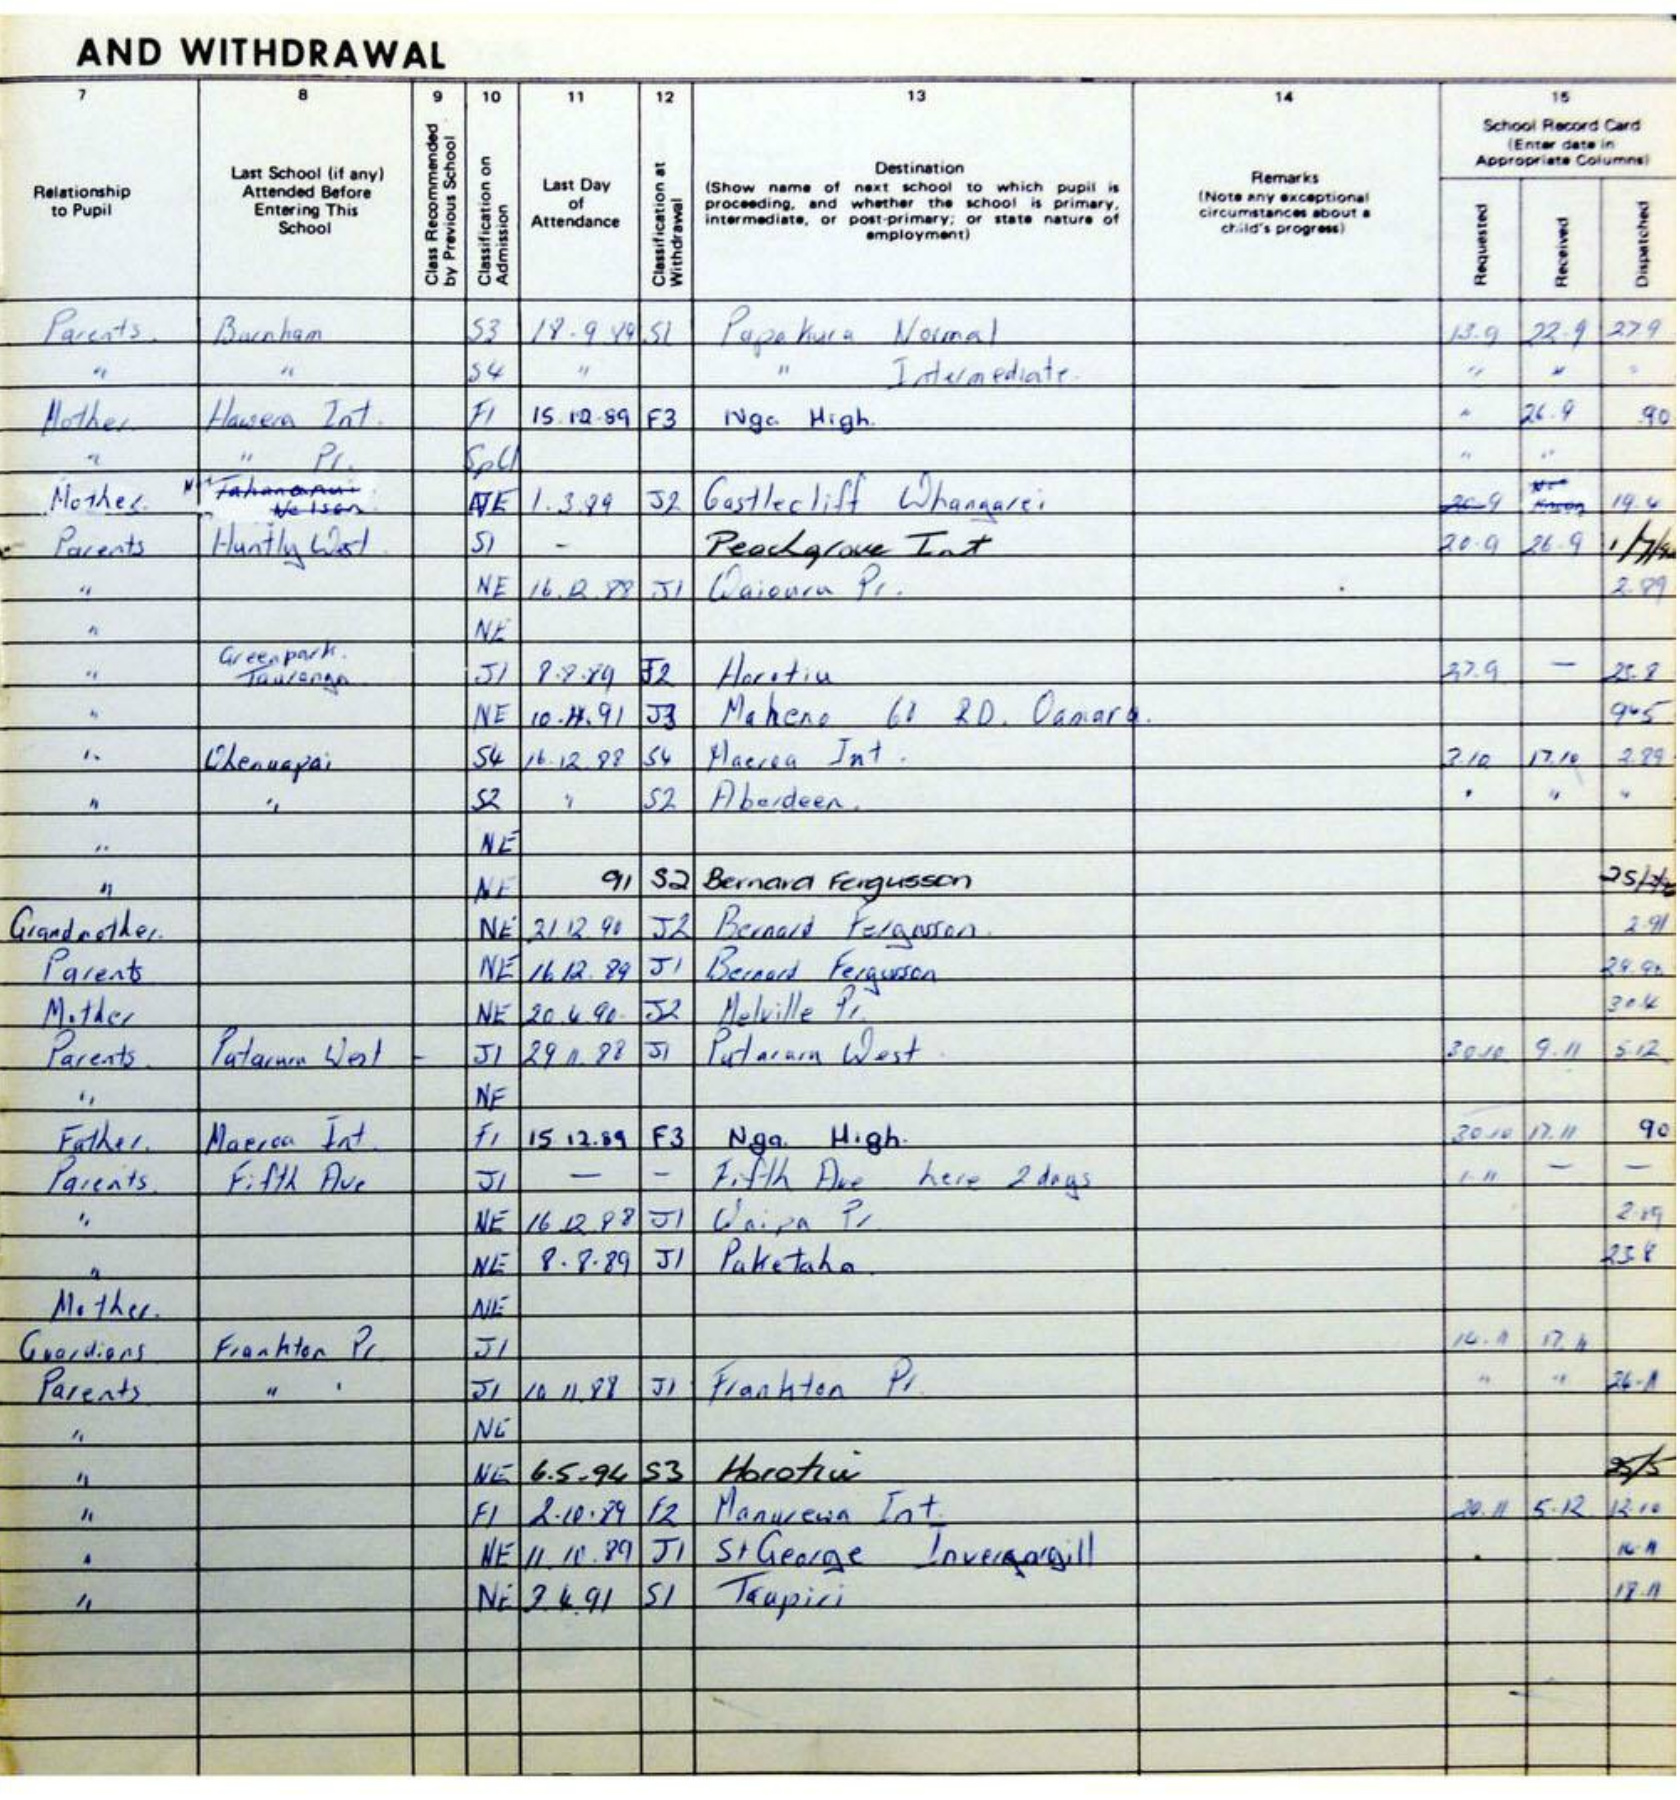 AND WITHDRAWAL
7 8 9 10 11 12 13 14 15
Relationship to Pupil
Last School (if any) Attended Before Entering This School
Class Recommended by Previous School
Classification on Admission
Last Day of Attendance
Classification at Withdrawal
Destination
(Show name of next school to which pupil is proceeding, and whether the school is primary, intermediate, or post-primary; or state nature of employment)
Remarks
(Note any exceptional circumstances about a child's progress)
School Record Card
(Enter date in Appropriate Columns)
Requested
Received
Dispatched
Parents. Burnham S3 18-9-89 S1 Papakura Normal 13.9 22-9 27.9
" " S4 " " Intermediate. " " "
Mother Hawera Int. F1 15.12.89 F3 Nga High. " 26.9 90
" " Pr. Spcl " "
Mother. Tahananui Nelson NE 1.3.89 J2 Castlecliff Whangarei 20-9 19.4
Parents Huntly West S1 - Peachgrove Int 20.9 26.9
" NE 16.12.88 J1 Waiouru Pr. 2.89
" NE
" Greenpark. Tauranga J1 8.8.89 J2 Horotiu 27.9 — 25.8
" NE 10.4.91 J3 Maheno 6d RD. Oamaru.
" Whenuapai S4 16.12.88 S4 Maeroa Int. 3.10 17.10 2.89
" " S2 " S2 Aberdeen. " " "
" NE
" NE 91 S2 Bernard Fergusson
Grandmother. NE 21.12.90 J2 Bernard Fergusson. 2.91
Parents NE 16.12.89 J1 Bernard Fergusson
Mother NE 20.4.90 J2 Melville Pr. 30.4
Parents. Putaruru West - J1 29.11.88 J1 Putaruru West. 30.10 9.11 5.12
" NE
Father. Maeroa Int. F1 15.12.89 F3 Nga. High. 30.10 17.11 90
Parents. Fifth Ave J1 — - Fifth Ave here 2 days 1.11 — —
" NE 16.12.88 J1 Waipa Pr 2.89
" NE 8.8.89 J1 Paketaha. 23.8
Mother. NE
Guardians Frankton Pr J1 14.11 17.11
Parents " " J1 10.11.88 J1 Frankton Pr. " " 26-11
" NE
" NE 6.5.94 S3 Horotiu
" F1 2.10.89 F2 Manurewa Int. 29.11 5.12 12.10
" NE 11.10.89 J1 St George Invercargill
" NE 3.4.91 S1 Taupiri